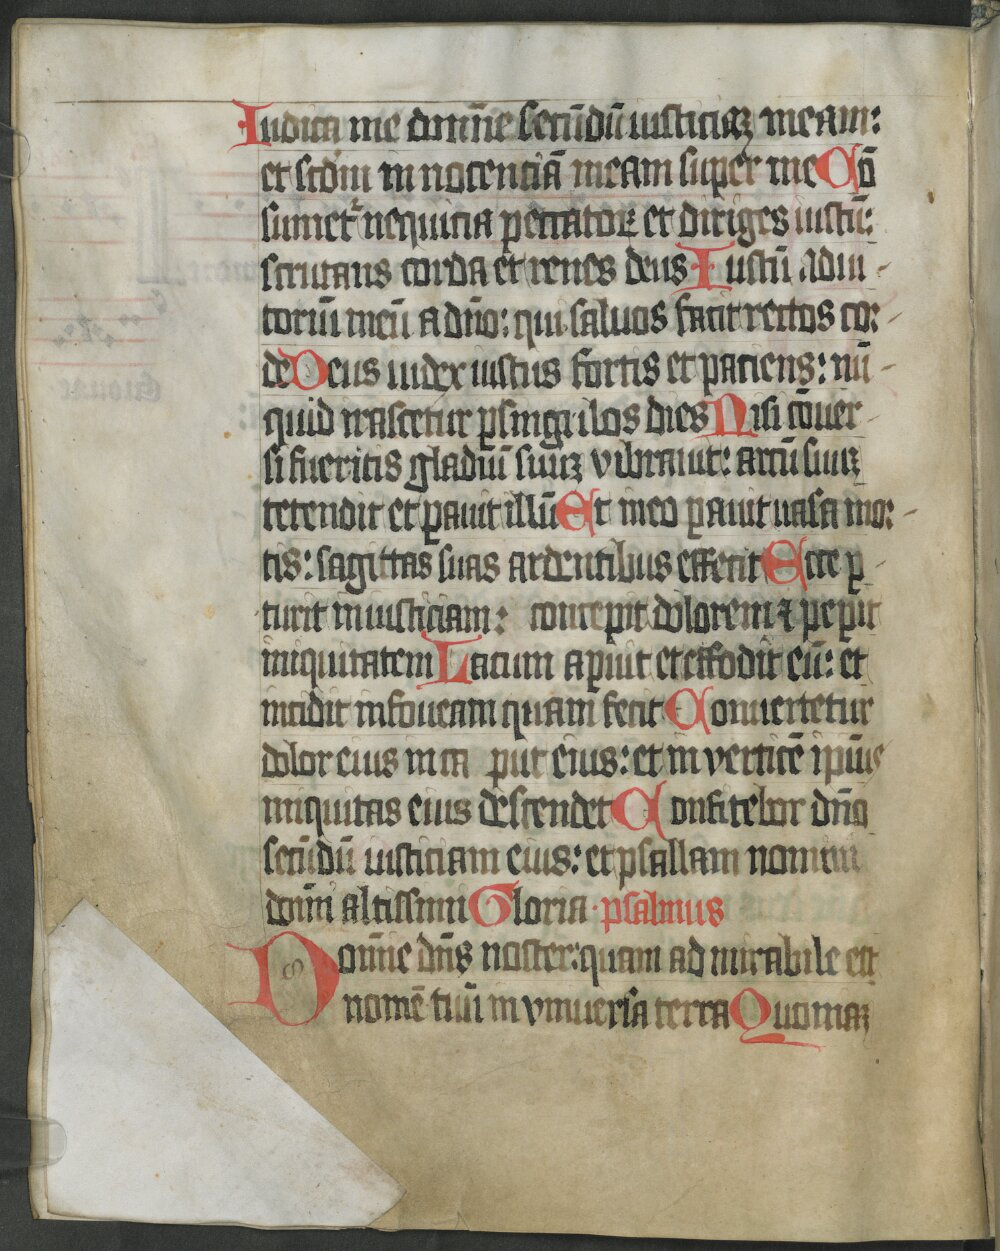 Iudica me domīne secūdū iusticiaꝫ meam:
et scdm̄ innocenciā meam super me Cō
sumet᷑ nequicia peccatoꝝ et diriges iustū:
scrutans corda et renes deus Iustū adiu
toriū meū a dn̄o: qui saluos facit rectos cor
de Deus iudex iustus fortis et paciens: nū
quid irascetur ꝑ singulos dies Nisi cōuer
si fueritis gladiū suuꝫ vibrauit: arcū suuꝫ
tetendit et ꝑauit illū Et in eo ꝑauit uasa mor
tis: sagittas suas ardentibus effecit Ecce ꝑ
turit iniusticiam: concepit dolorem ⁊ peꝑit
iniquitatem Lacum aꝑuit et effodit eū: et
incidit in foueam quam fecit Conuertetur
dolor eius in ca put eius: et in verticē ipīus
iniquitas eius descendet Confitebor dn̄o
secūdū iusticiam eius: et psallam nomini
domī altissimi Gloria psalmus
Domīne dn̄s noster: quam admirabile est
nomē tuū in vniuersa terra Quoniaꝫ
8
Euouae